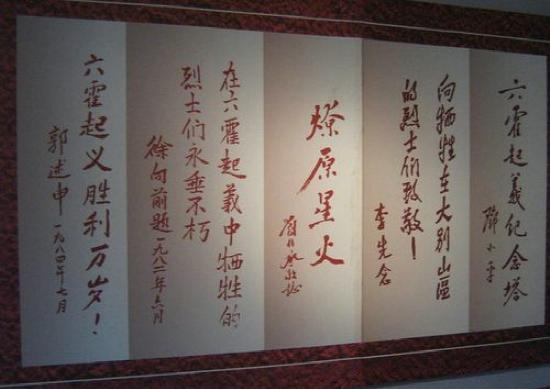 六霍起義纪念塔
鄧小平
向牺牲在大别山區
的烈士们致敬！
李先念
燎原星火
刘伯承敬题
在六霍起義中牺牲的
烈士们永垂不朽
徐向前题一九八二年六月
六霍起义胜利万岁！
郭述申 一九八四年七月